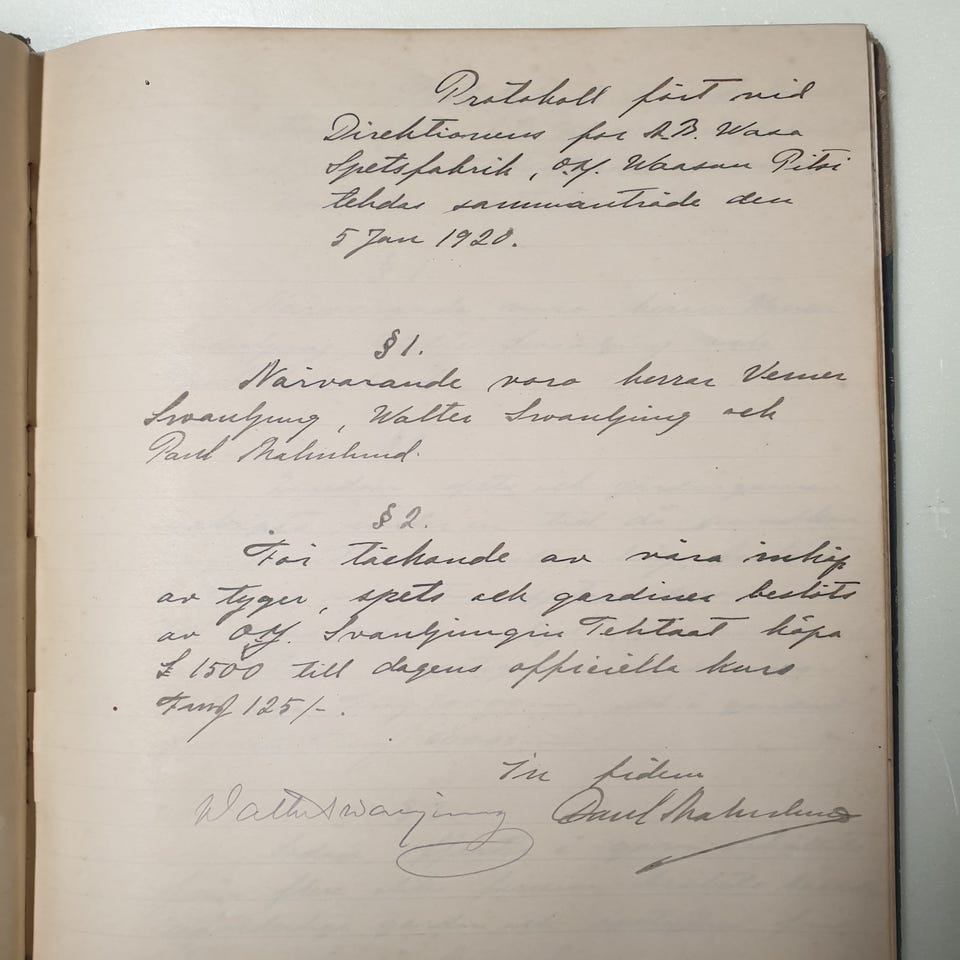 Protokoll fört vid
Direktionens för A.B. Wasa
Spetsfabrik, O.Y. Waasan Pitsi
tehdas sammanträde den
5 Jan 1920.
§ 1.
Närvarande voro herrar Verner
Swanljung, Walter Swanljung och
Paul Malmlund.
§ 2.
För täckande av våra inköp
av tyger, spets och gardiner beslöts
av O.Y. Svanljungin Tehtaat köpa
£ 1500 till dagens officiella kurs
Fmf 125/-.
In fidem
Walter Swanljung Paul Malmlund